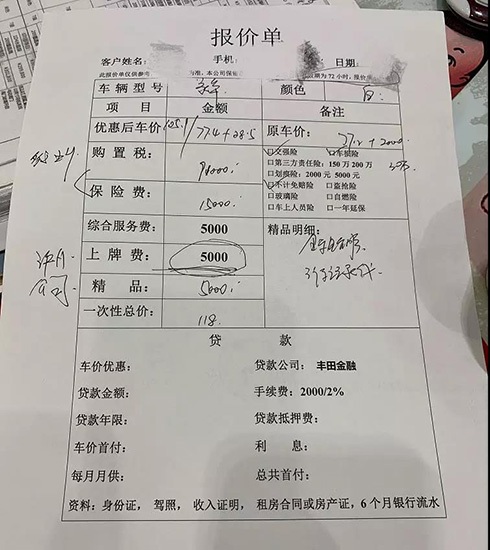 报价单
客户姓名: 手机: 日期:
此报价单仅供参考 为准,本公司保
期为72小时,报价
车辆型号 颜色 白
项目 金额 备注
优惠后车价 105.9/77.4+28.5 原车价:
购置税: 90000
□交强险 □车损险
□第三方责任险:150万 200万
□划痕险:2000元 5000元
保险费: 15000
□不计免赔险 □盗抢险
□玻璃险 □自燃险
□车上人员险 □一年延保
综合服务费: 5000 精品明细:
上牌费: 5000
精品: 5000
一次性总价: 118
贷款
车价优惠: 贷款公司: 丰田金融
贷款金额: 手续费:2000/2%
贷款年限: 贷款抵押费:
车价首付: 利息:
每月月供: 总共首付:
资料:身份证,驾照,收入证明,租房合同或房产证,6个月银行流水